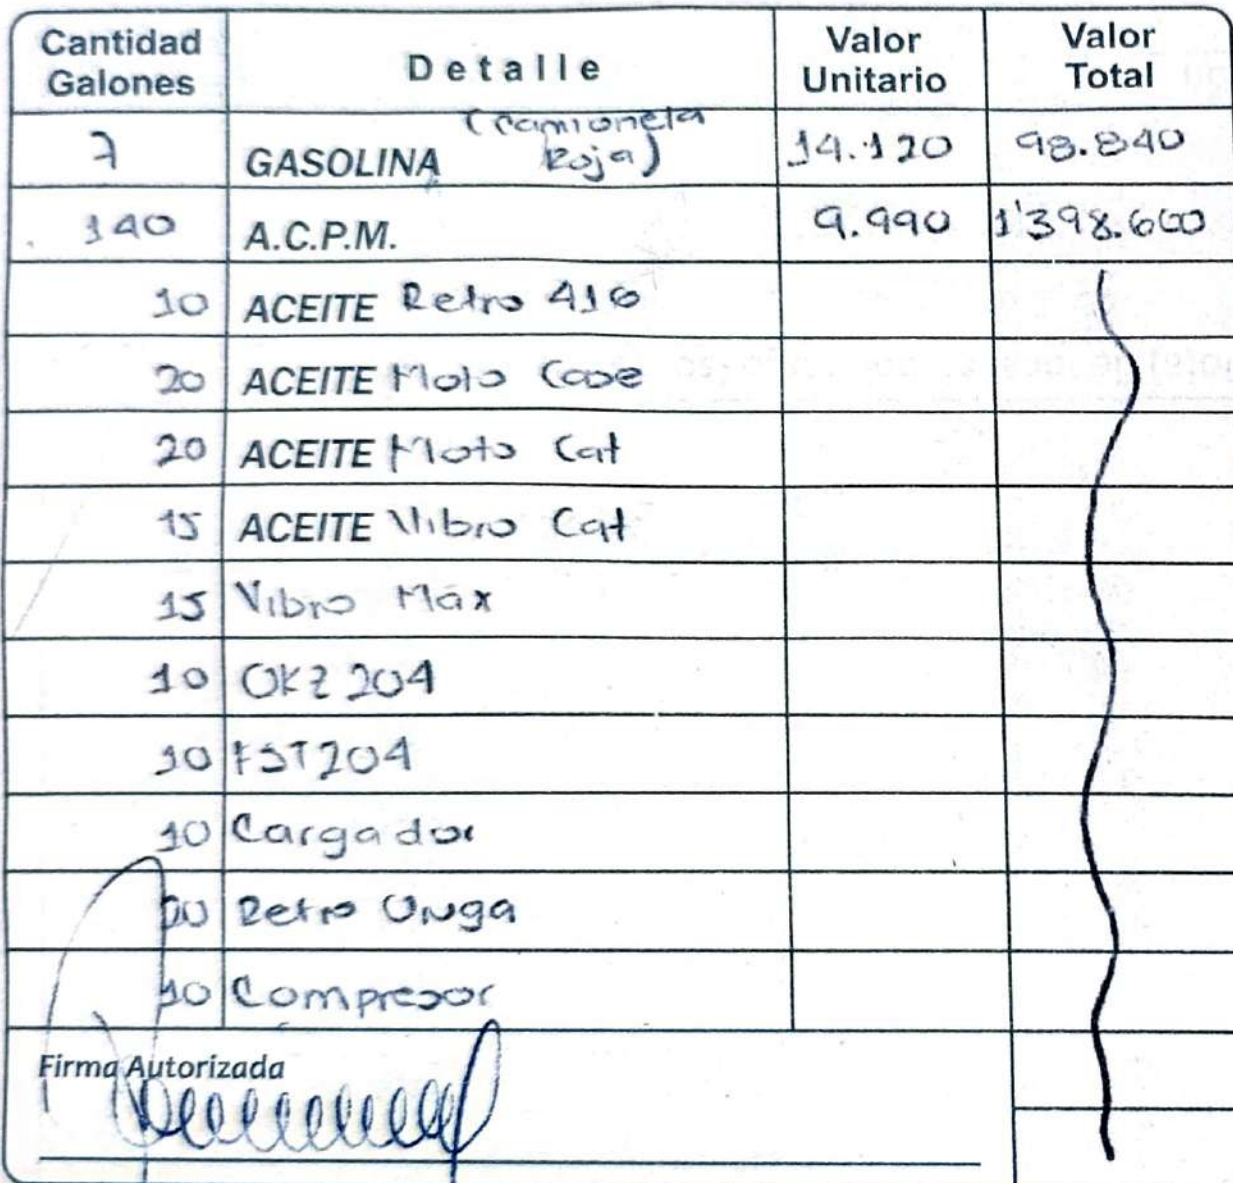 Cantidad Galones Detalle Valor Unitario Valor Total
7 GASOLINA (camioneta Roja) 14.120 98.840
140 A.C.P.M. 9.990 1'398.600
10 ACEITE Retro 416
20 ACEITE Moto Case
20 ACEITE Moto Cat
15 ACEITE Vibro Cat
15 Vibro Max
10 OKZ 204
10 FST204
10 Cargador
Retro
10 Compresor
Firma Autorizada